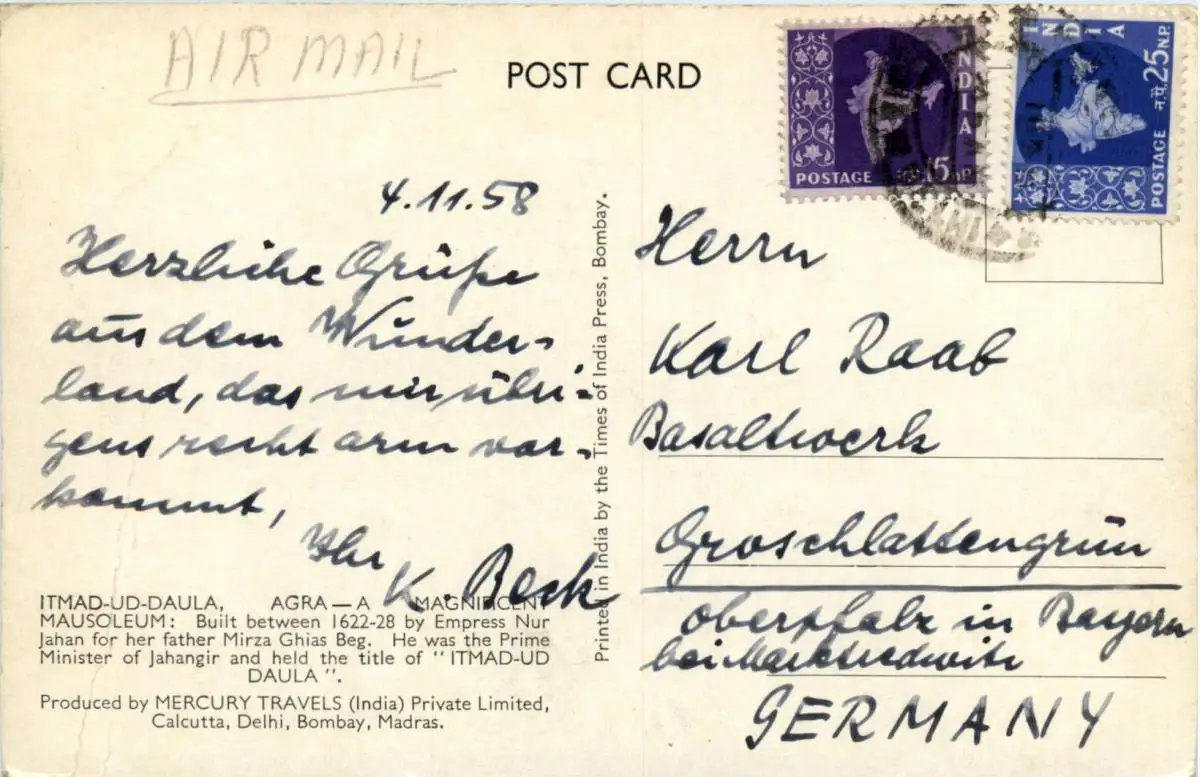 AIR MAIL
POST CARD
INDIA
POSTAGE
15 N.P.
INDIA
POSTAGE न.पै. 25 N.P.
4.11.58
Herzliche Grüße
aus dem Wunder-
land, das mir übri-
gens recht arm vor-
kommt,
Ihr
K. Beck
ITMAD-UD-DAULA, AGRA — A MAGNIFICENT
MAUSOLEUM: Built between 1622-28 by Empress Nur
Jahan for her father Mirza Ghias Beg. He was the Prime
Minister of Jahangir and held the title of "ITMAD-UD
DAULA".
Produced by MERCURY TRAVELS (India) Private Limited,
Calcutta, Delhi, Bombay, Madras.
Printed in India by the Times of India Press, Bombay.
Herrn
Karl Raab
Basaltwerk
Groschlattengrün
Oberpfalz in Bayern
bei Marktredwitz
GERMANY